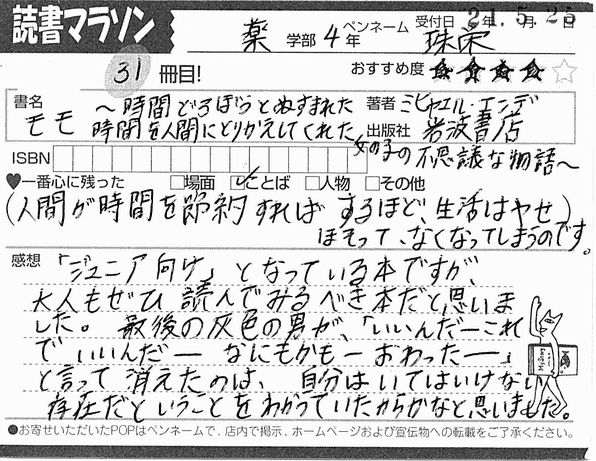 読書マラソン
薬 学部 4 年 ペンネーム 珠宋 受付日 21年5月25日
31 冊目! おすすめ度 ★★★★☆
書名 モモ ～時間どろぼうとぬすまれた 時間を人間にとりかえしてくれた 女の子の不思議な物語～
著者 ミヒャエル・エンデ
出版社 岩波書店
ISBN
♥一番心に残った □場面 ☑ことば □人物 □その他
(人間が時間を節約すればするほど、生活はやせ)
ほそって、なくなってしまうのです。
感想 「ジュニア向け」となっている本ですが、
大人もぜひ読んでみるべき本だと思いま
した。最後の灰色の男が、「いいんだーこれ
でいいんだー なにもかもーおわったー」
と言って消えたのは、自分はいてはいけない
存在だということをわかっていたからかなと思いました。
●お寄せいただいたPOPはペンネームで、店内で掲示、ホームページおよび宣伝物への転載をご了承ください。